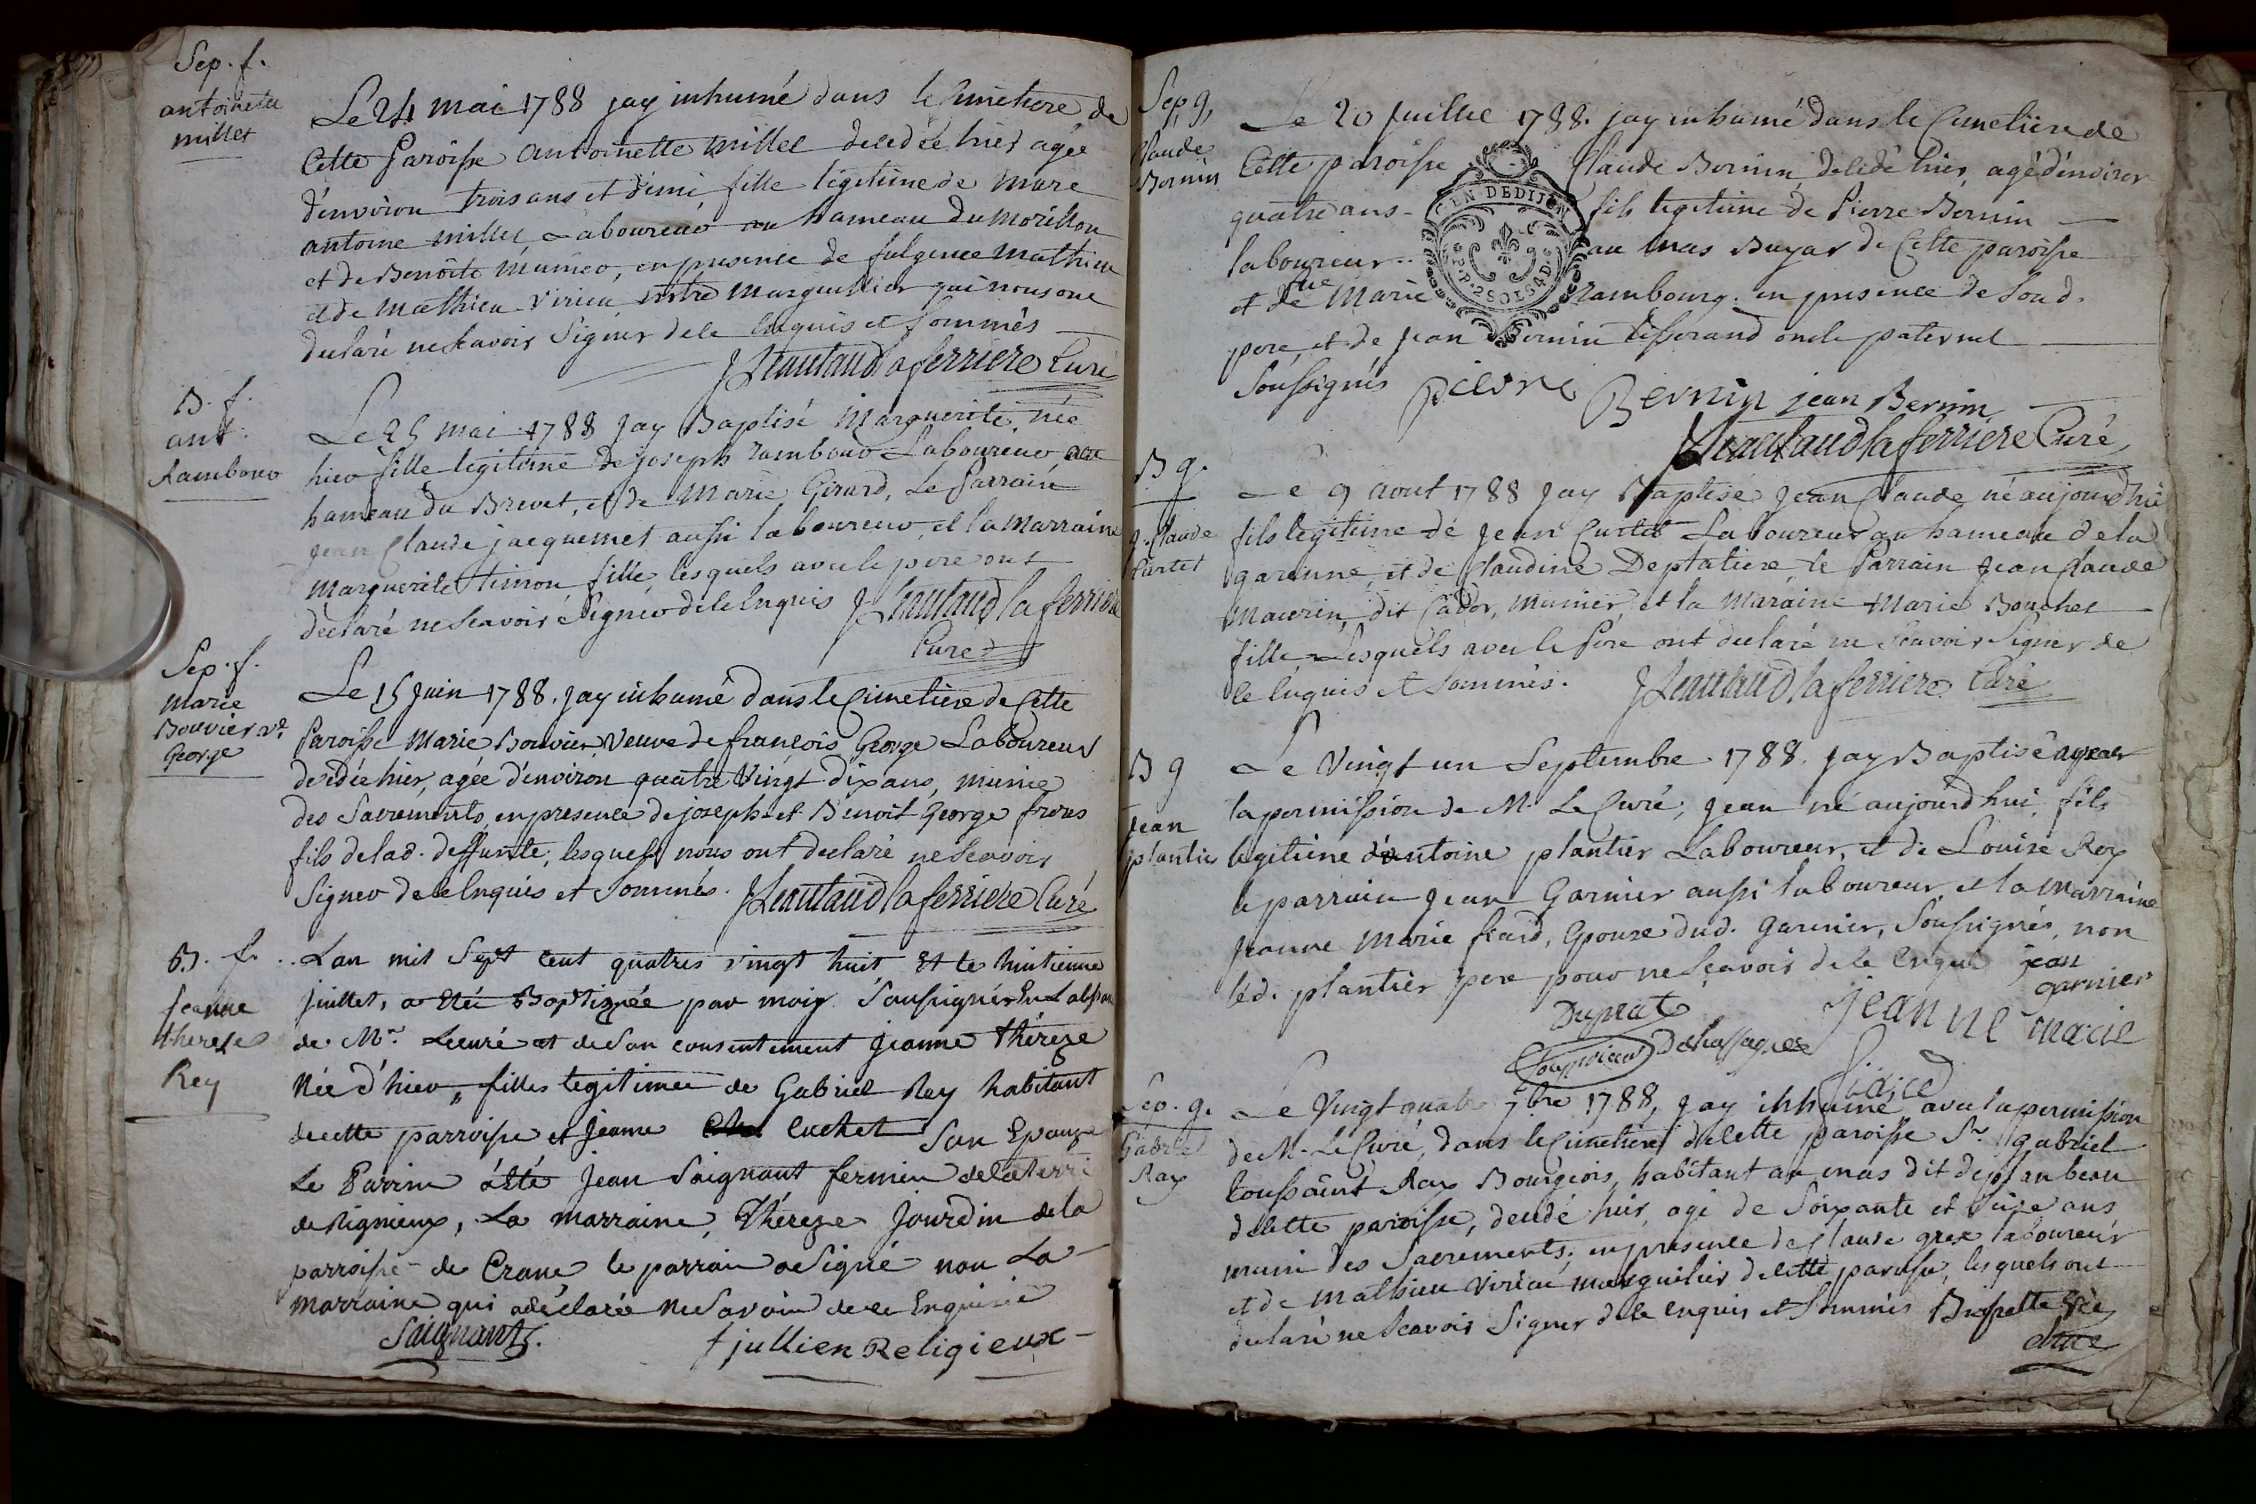 Sep. f.
antoinette
millet
Le 24 mai 1788 jay inhumé dans le Cimetiere de
Cette Paroisse antoinette millet decedée hier agée
d'environ trois ans et demi, fille légitime de Marc
antoine millet, Laboureur au hameau du morillon
et de Benoite Munier, en presence de fulgence mathieu
et de mathieu virieu notre marguillier qui nous ont
declaré ne scavoir Signer de ce Enquis et sommés
J Leautaud laferriere Curé
B. f.
ant.
Rambour
Le 25 mai 1788 Jay Baptisé Marguerite, née
hier fille legitime de joseph Rambour Laboureur au
hameau du Brevet, et de Marie Girard, Le Parrain
jean Claude jacquemet aussi laboureur, et la Marraine
Marguerite timon, fille, lesquels avec le pere ont
declaré ne scavoir signer de ce Enquis J Leautaud la ferriere
Curé
Sep. f.
Marie
Bouvier ve
George
Le 15 Juin 1788. jay inhumé dans le Cimetiere de Cette
Paroisse Marie Bouvier Veuve de françois George Laboureur
decedée hier, agée d'environ quatre Vingt dix ans, munie
des Sacrements, en presence de joseph et Benoit George freres
fils de lad. deffunte, lesquels nous ont declaré ne Scavoir
Signer de ce Enquis et Sommés. J Leautaud laferriere Curé
B. f.
jeanne
therese
Rey
Lan mil Sept cent quatres vingt huit Et le huitienne
juillet, a été Baptizée par moiy Sousignér En Labsan
de Mr. Lecuré et de son consentement jeanne thérèze
Née d'hier, filles legitimee de Gabriel Rey habitant
de cette parroisse et jeanne cuchet Son Epouze
Le Parin a été jean Saignant fermier de la terre
de Rignieux, La marraine, Théreze Jourdin de la
parroisse de Crane le parrain a Signé non La
marraine qui a déclaré Ne Savoir de ce Enquisie
Saignant.
f jullien Religieux
Sep. g.
Claude
Bernin
Le 20 Juillet 1788. jay inhumé dans le Cimetiere de
Cette paroisse Claude Bernin decedé hier, agé d'environ
quatre ans fils legitime de Pierre Bernin
laboureur au mas Buyar de Cette paroisse
et de Marie Rambourg. en presence de Son d.
pere, et de Jean Bernin tisserand oncle paternel
Soussignés pierre Bernin jean Bernin
J Leautaud la ferriere Curé
GEN DE DIJON
B g.
j. Claude
Curtet
Le 9 aout 1788 Jay Baptisé Jean Claude né aujourd'hui
fils legitime de Jean Curtet Laboureur au hameau de la
garenne, et de Claudine Deplatiere, le Parrain Jean Claude
Maurin, dit Cador, munier, et la Maraine Marie Bouchet
fille Lesquels avec le Pere ont declaré ne Scavoir Signer de
ce Enquis et Sommés. J Leautaud la ferriere Curé
B g
Jean
plantier
Le Vingt un Septembre 1788. Jay Baptisé ayant
la permission de M. Le Curé, Jean né aujourd'hui, fils
legitime d'Antoine plantier Laboureur, et de Louise Rey
le parrain Jean Garnier aussi laboureur et la Marraine
jeanne Marie fiard, Epouse dud. Garnier, Soussignés, non
led. plantier pere pour ne Sçavoir de ce Enquis jean
garnier
Duprat
jeanne marie
fiard
Sep. g.
Gabriel
Ray
Le Vingt quatre 7bre 1788, Jay inhumé avec la permission
de M. Le Curé, dans le Cimetiere de cette paroisse Sr. Gabriel
toussaint Ray Bourgeois, habitant au mas dit de plan beau
de cette paroisse, decedé hier, agé de Soixante et Seize ans
muni des Sacrements; en presence de Claude grex laboureur
et de Mathieu Virieu marguilier de cette paroisse, lesquels ont
declaré ne Scavoir Signer de ce enquis et Sommés